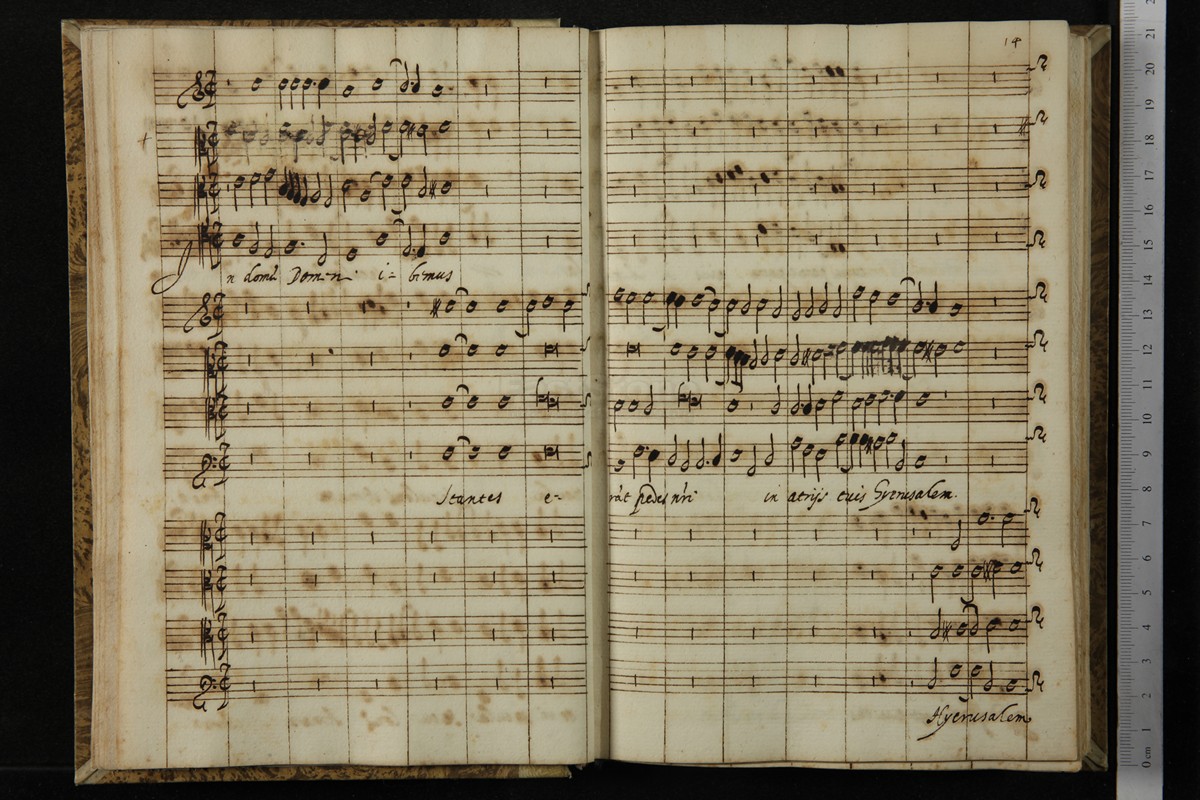 14
In domū Domini i-bimus
Stantes e-rāt pedes nri in atrijs tuis Hyerusalem.
Hyerusalem
0 cm 1 2 3 4 5 6 7 8 9 10 11 12 13 14 15 16 17 18 19 20 21